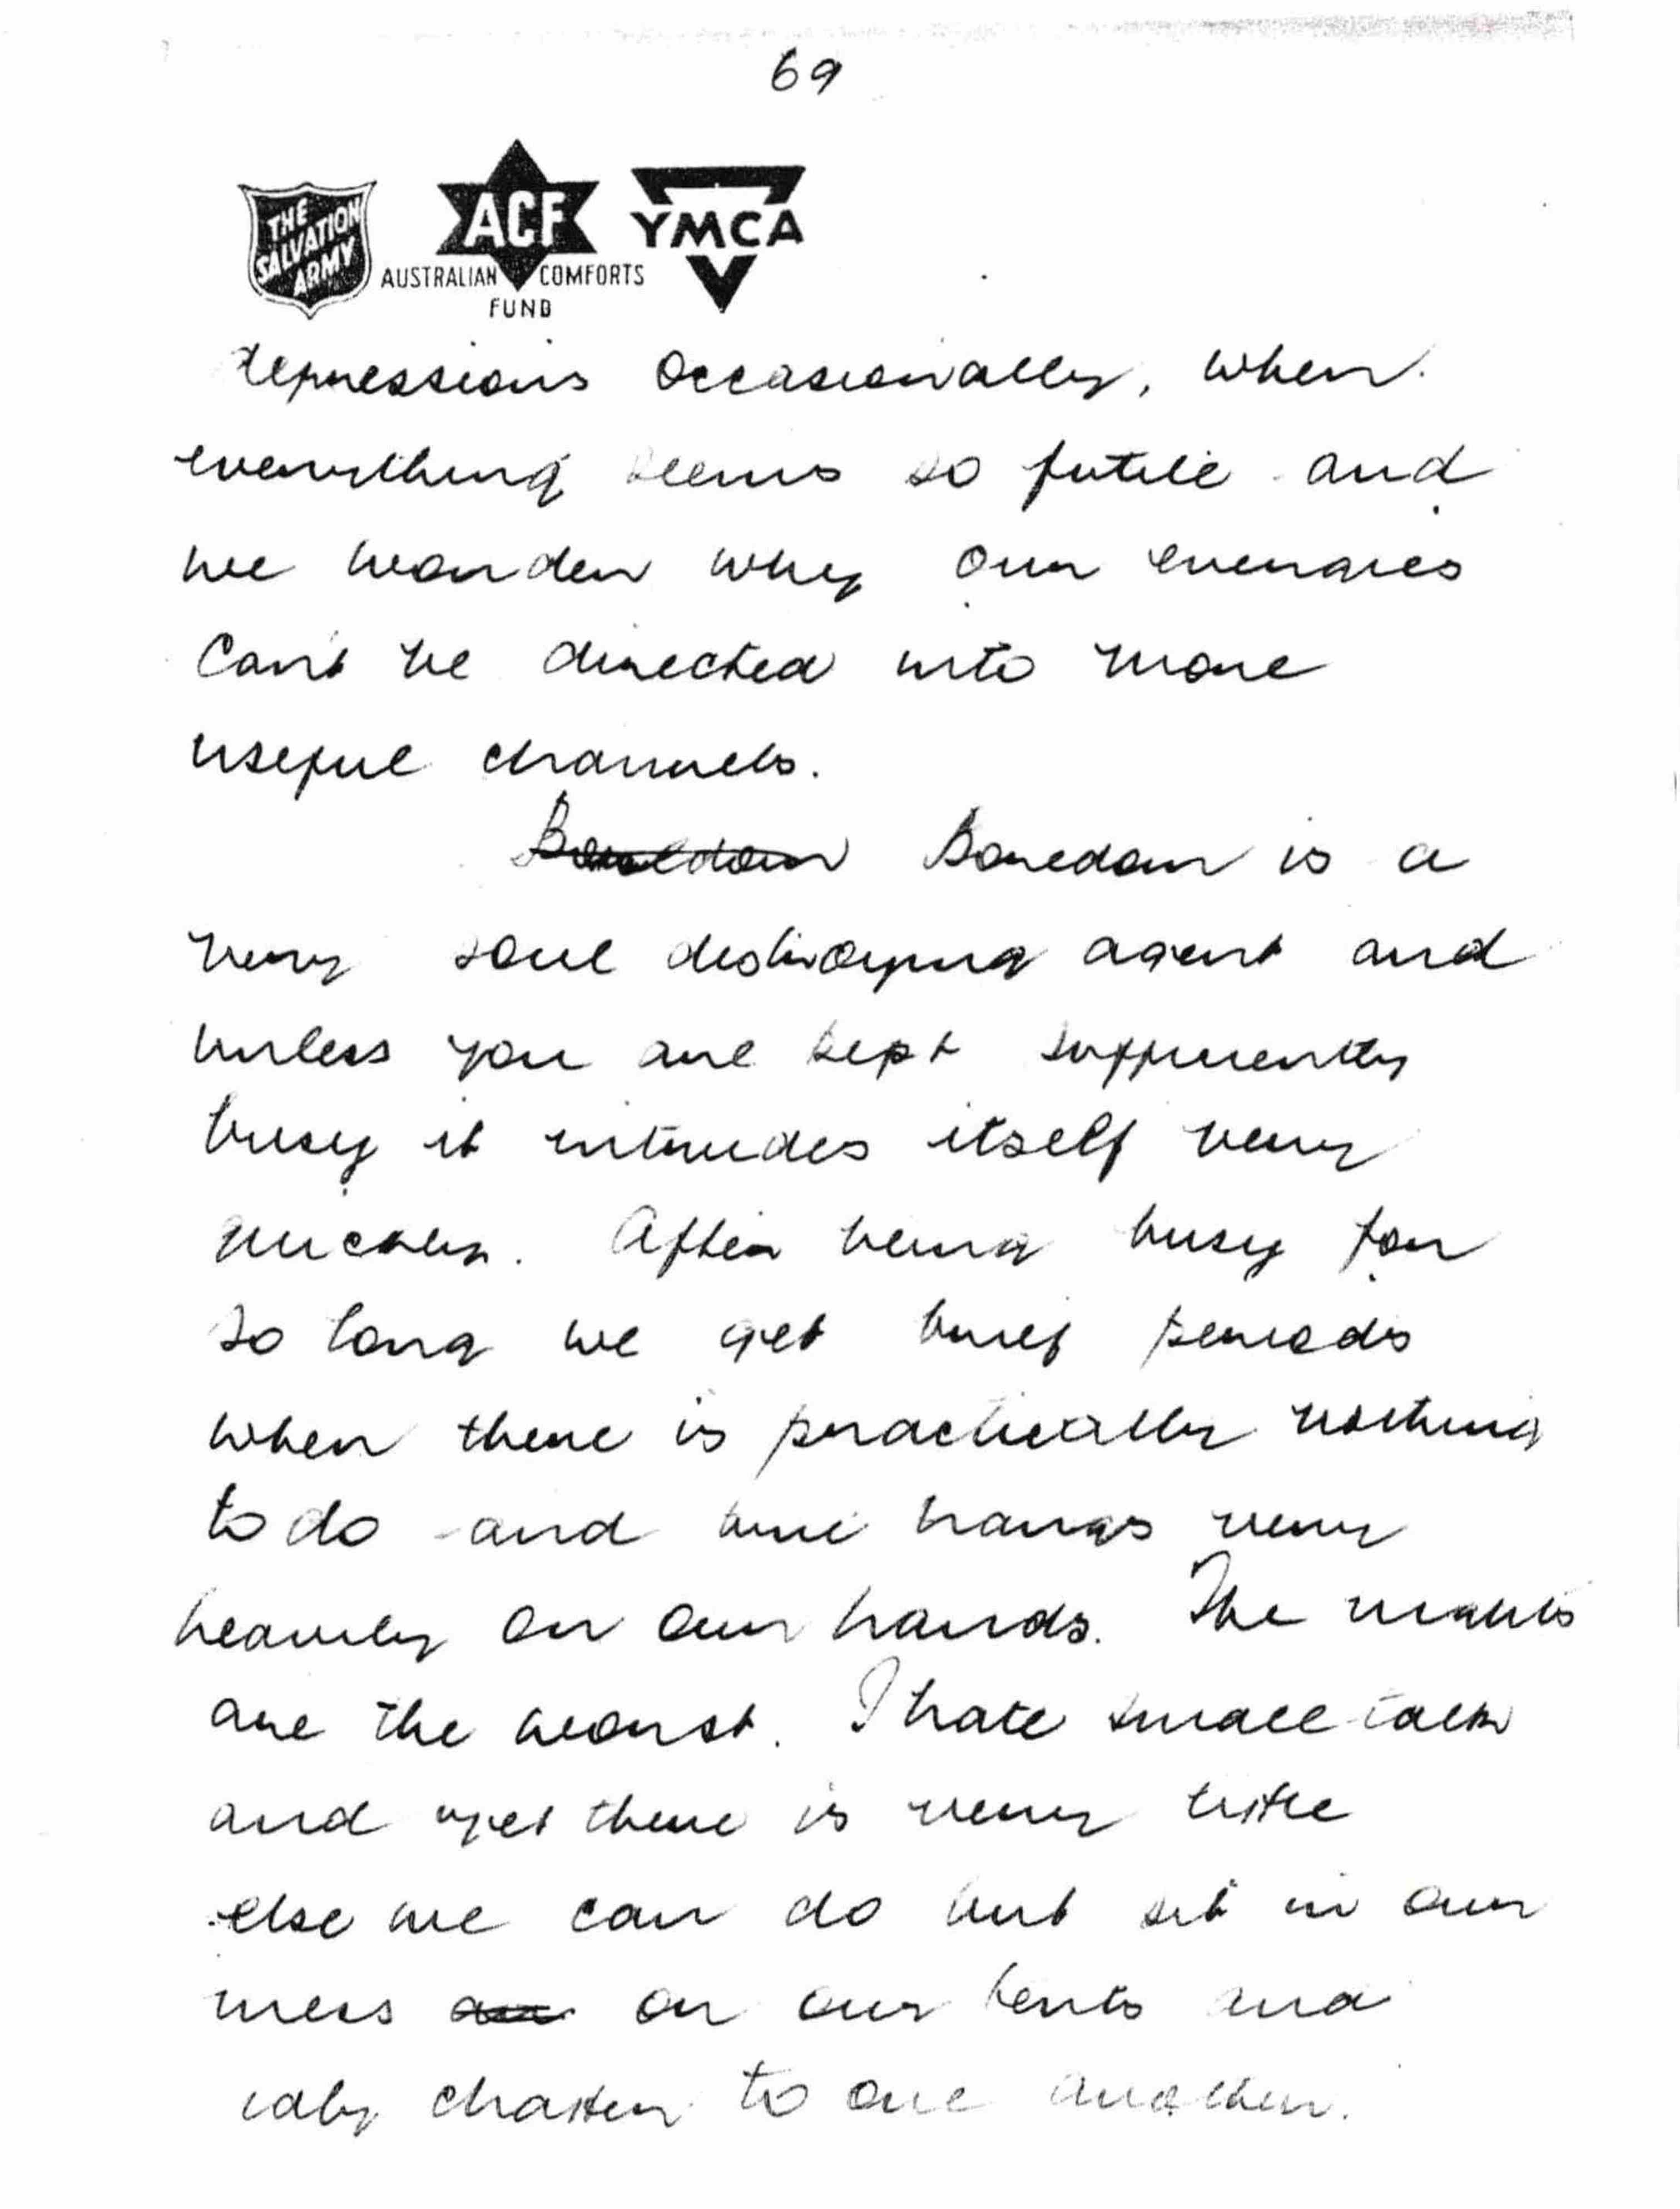 69
THE SALVATION ARMY
ACF
YMCA
AUSTRALIAN COMFORTS
FUND
depressions occasionally, when
everything seems so futile and
we wonder why our energies
can't be directed into more
useful channels.
Boredom is a
very soul destroying agent and
unless you are kept sufficiently
busy it intrudes itself very
quickly. After being busy for
so long we get brief periods
when there is practically nothing
to do and time hangs very
heavily on our hands. The nights
are the worst. I hate small talk
and yet there is very little
else we can do but sit in our
mess or our tents and
idly chatter to one another.